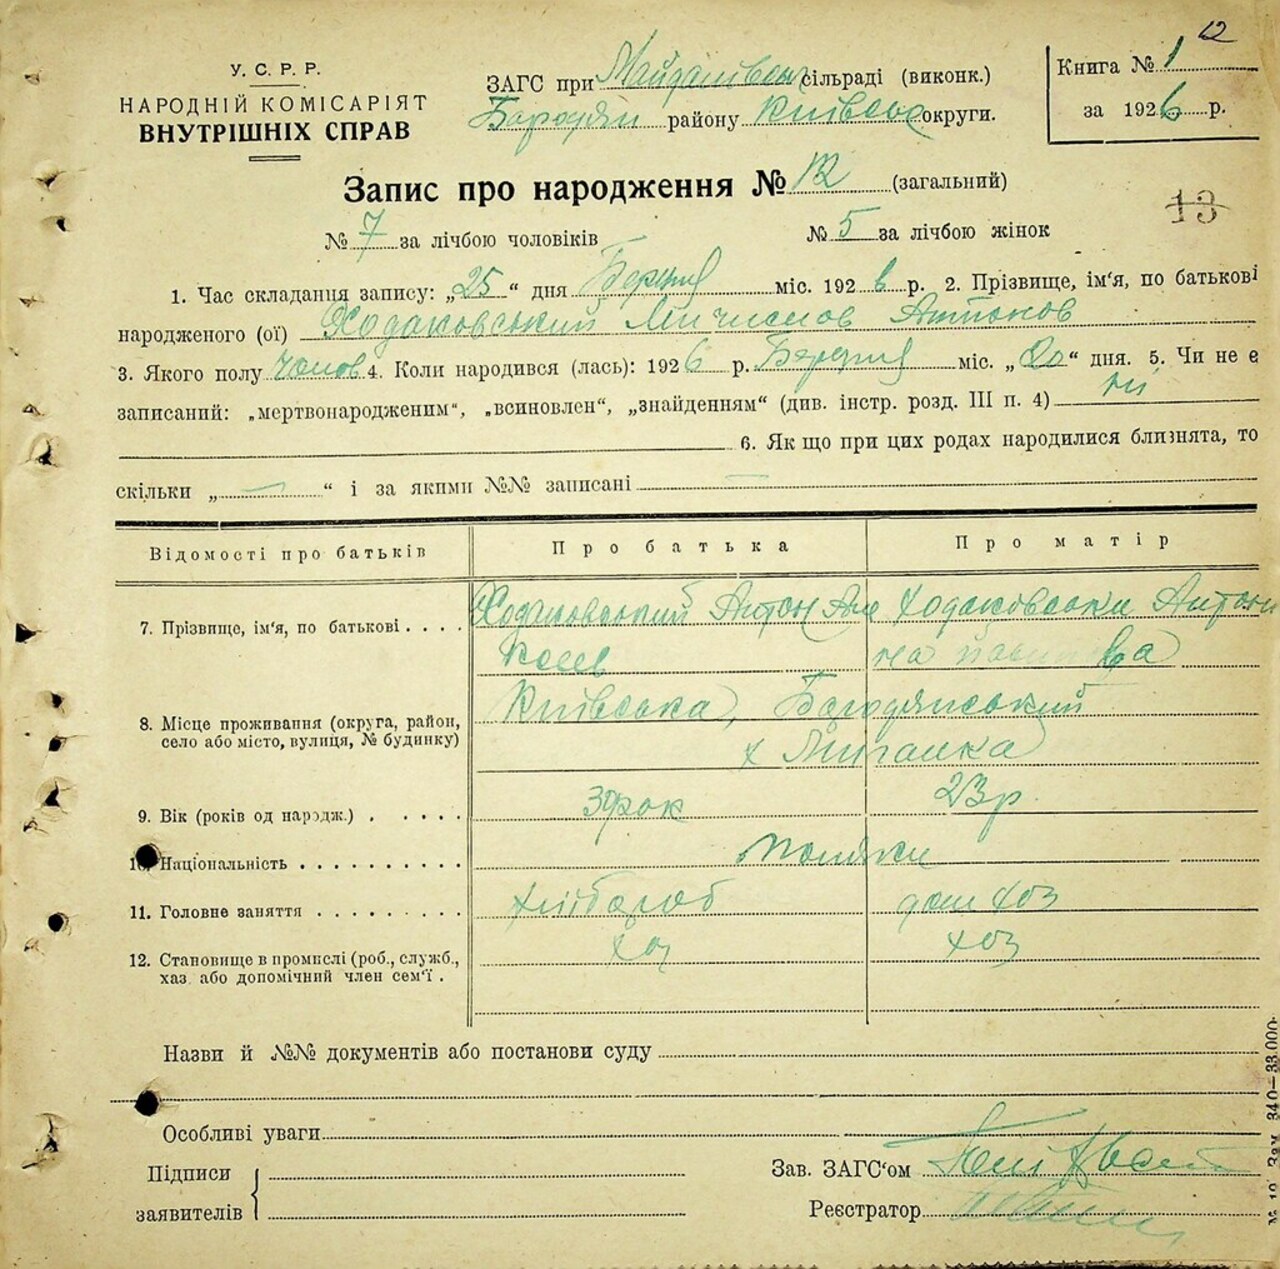 12
У. С. Р. Р.
НАРОДНІЙ КОМІСАРІЯТ
ВНУТРІШНІХ СПРАВ
ЗАГС при сільраді (виконк.)
Бородян району Київсько округи.
Книга № 1
за 1926 р.
Запис про народження № 12 (загальний)
13
№ 7 за лічбою чоловіків № 5 за лічбою жінок
1. Час складання запису: „25“ дня Березня міс. 1926 р. 2. Прізвище, ім'я, по батькові
народженого (ої) Ходаковський Антонов
3. Якого полу Чолов 4. Коли народився (лась): 1926 р. Березня міс. „20“ дня. 5. Чи не є
записаний: „мертвонародженим“, „всиновлен“, „знайденням“ (див. інстр. розд. III п. 4) ні
6. Як що при цих родах народилися близнята, то
скільки „ — “ і за якими №№ записані —
Відомості про батьків Про батька Про матір
7. Прізвище, ім'я, по батькові . . . . Ходаковський Антон Ходаковська Антони
на
8. Місце проживання (округа, район, село або місто, вулиця, № будинку) Київська, Бородянський
х
9. Вік (років од народж.) . . . . . рок 23 р.
10. Національність . . . . . . . . . . Поляки
11. Головне заняття . . . . . . . . . хлібороб дом хоз
12. Становище в промислі (роб., служб., хоз хоз
хаз. або допомічний член сем'ї .
Назви й №№ документів або постанови суду
Особливі уваги
Підписи
заявителів
Зав. ЗАГС'ом
Реєстратор
№ 10 Зам. 340—33.000.